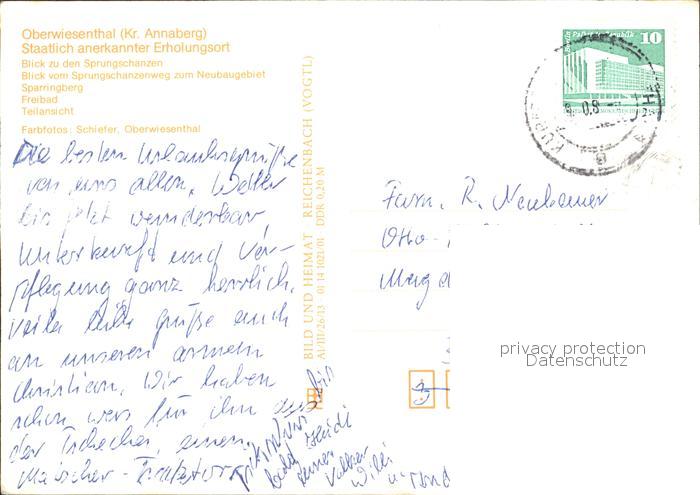 Oberwiesenthal (Kr. Annaberg)
Staatlich anerkannter Erholungsort
Blick zu den Sprungschanzen
Blick vom Sprungschanzenweg zum Neubaugebiet
Sparringberg
Freibad
Teilansicht
Farbfotos: Schiefer, Oberwiesenthal
Die besten Urlaubsgrüße
von uns allen, Wetter
bis jetzt wunderbar
Unterkunft und Ver-
pflegung ganz herrlich.
Viele liebe Grüße auch
an unseren armen
Christian, Wir haben
schon was für ihn aus
der Tschechei, einen
BILD UND HEIMAT REICHENBACH (VOGTL)
A1/III/26/13 01 14 1021/01 DDR 0,20 M
10
Fam. R. Neubauer
Otto-
Magd
privacy protection
Datenschutz
bis
Heidi
Willi